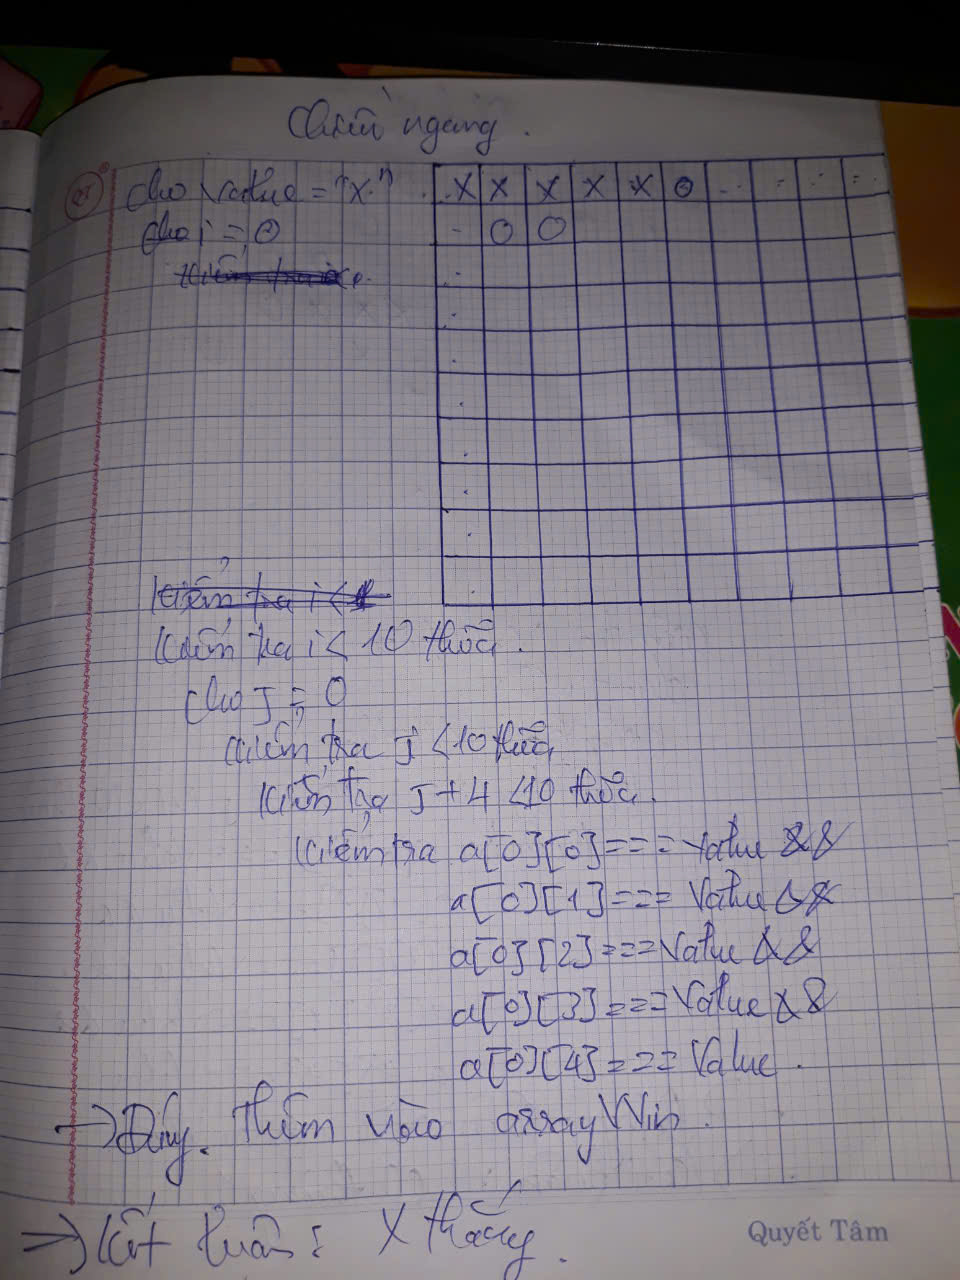 Chiều ngang.
Cho value = "X" . X X X X X O .. - .. -
Cho i = 0 - O O
Kiểm tra i<
Kiểm tra i < 10 thỏa.
Cho J = 0
Kiểm tra J < 10 thỏa
Kiểm tra J + 4 < 10 thỏa.
Kiểm tra a[0][0] === Value &&
a[0][1] === Value &&
a[0][2] === Value &&
a[0][3] === Value &&
a[0][4] === Value.
→ Đúng. Thêm vào arrayWin.
→ Kết luận: X thắng.
Quyết Tâm